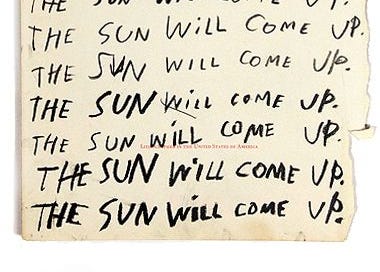 THE SUN WiLL COME UP.
THE SUN WiLL COME UP.
THE SUN WILL COME UP.
THE SUN WiLL COME UP.
THE SUN WiLL COME UP.
IN THE UNITED STATES OF AMERICA
THE SUN WiLL COME UP.
THE SUN WiLL COME UP.